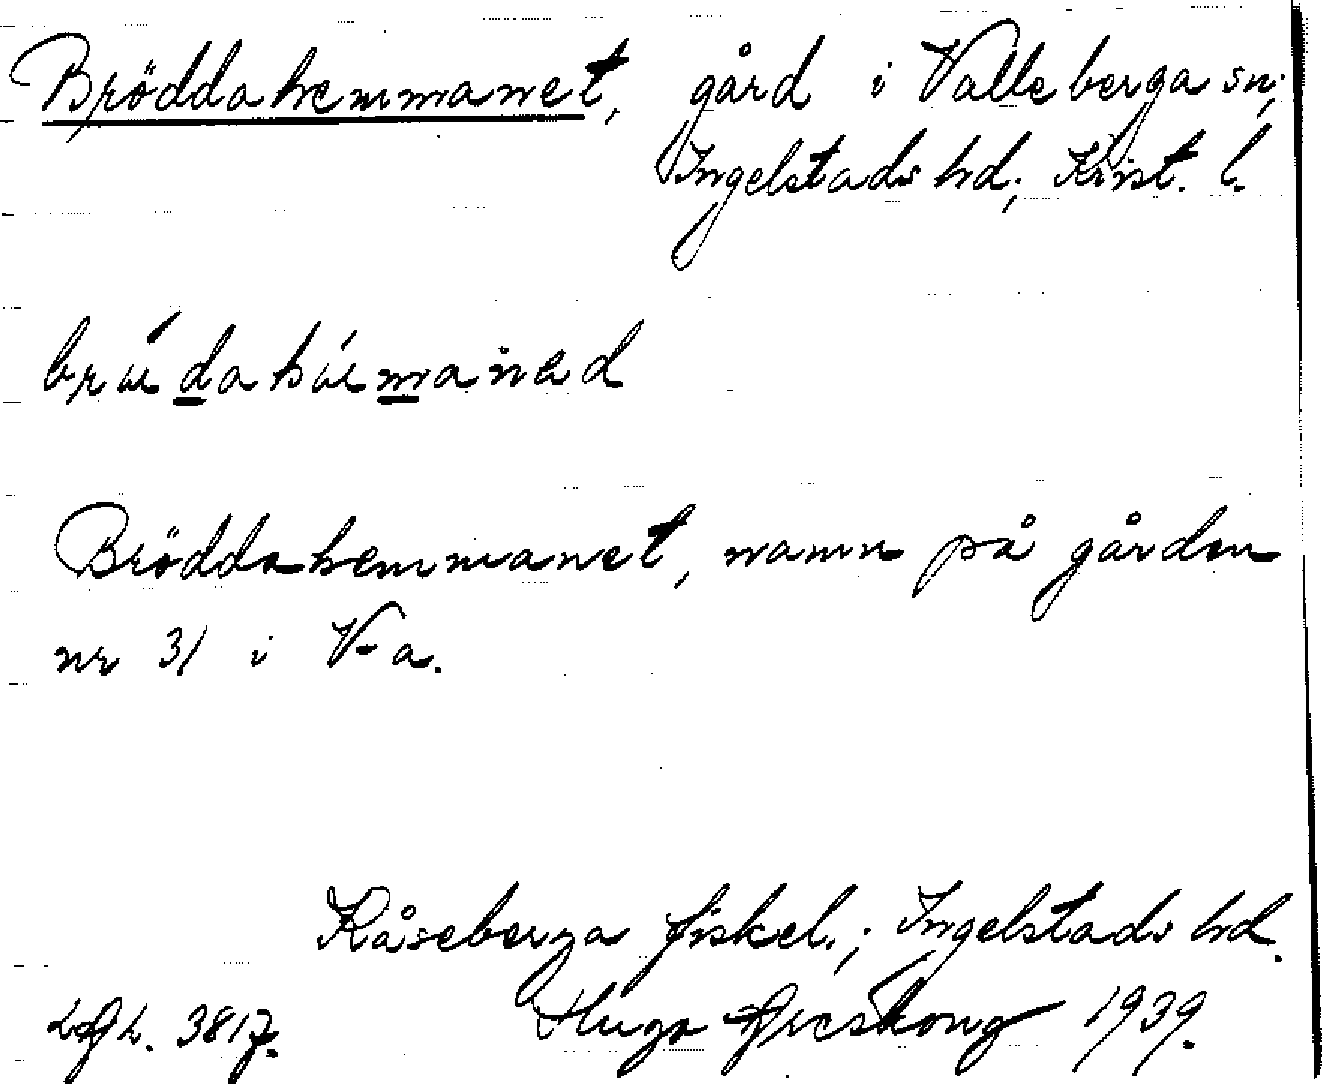 Bröddahemmanet, gård i Valleberga sn;
Ingelstads hd; Krist. l.
Bröddahemmanet, namn på gården
nr 31 i V-a.
Kåseberga fiskel.; Ingelstads hd.
3817. Hugo 1939.